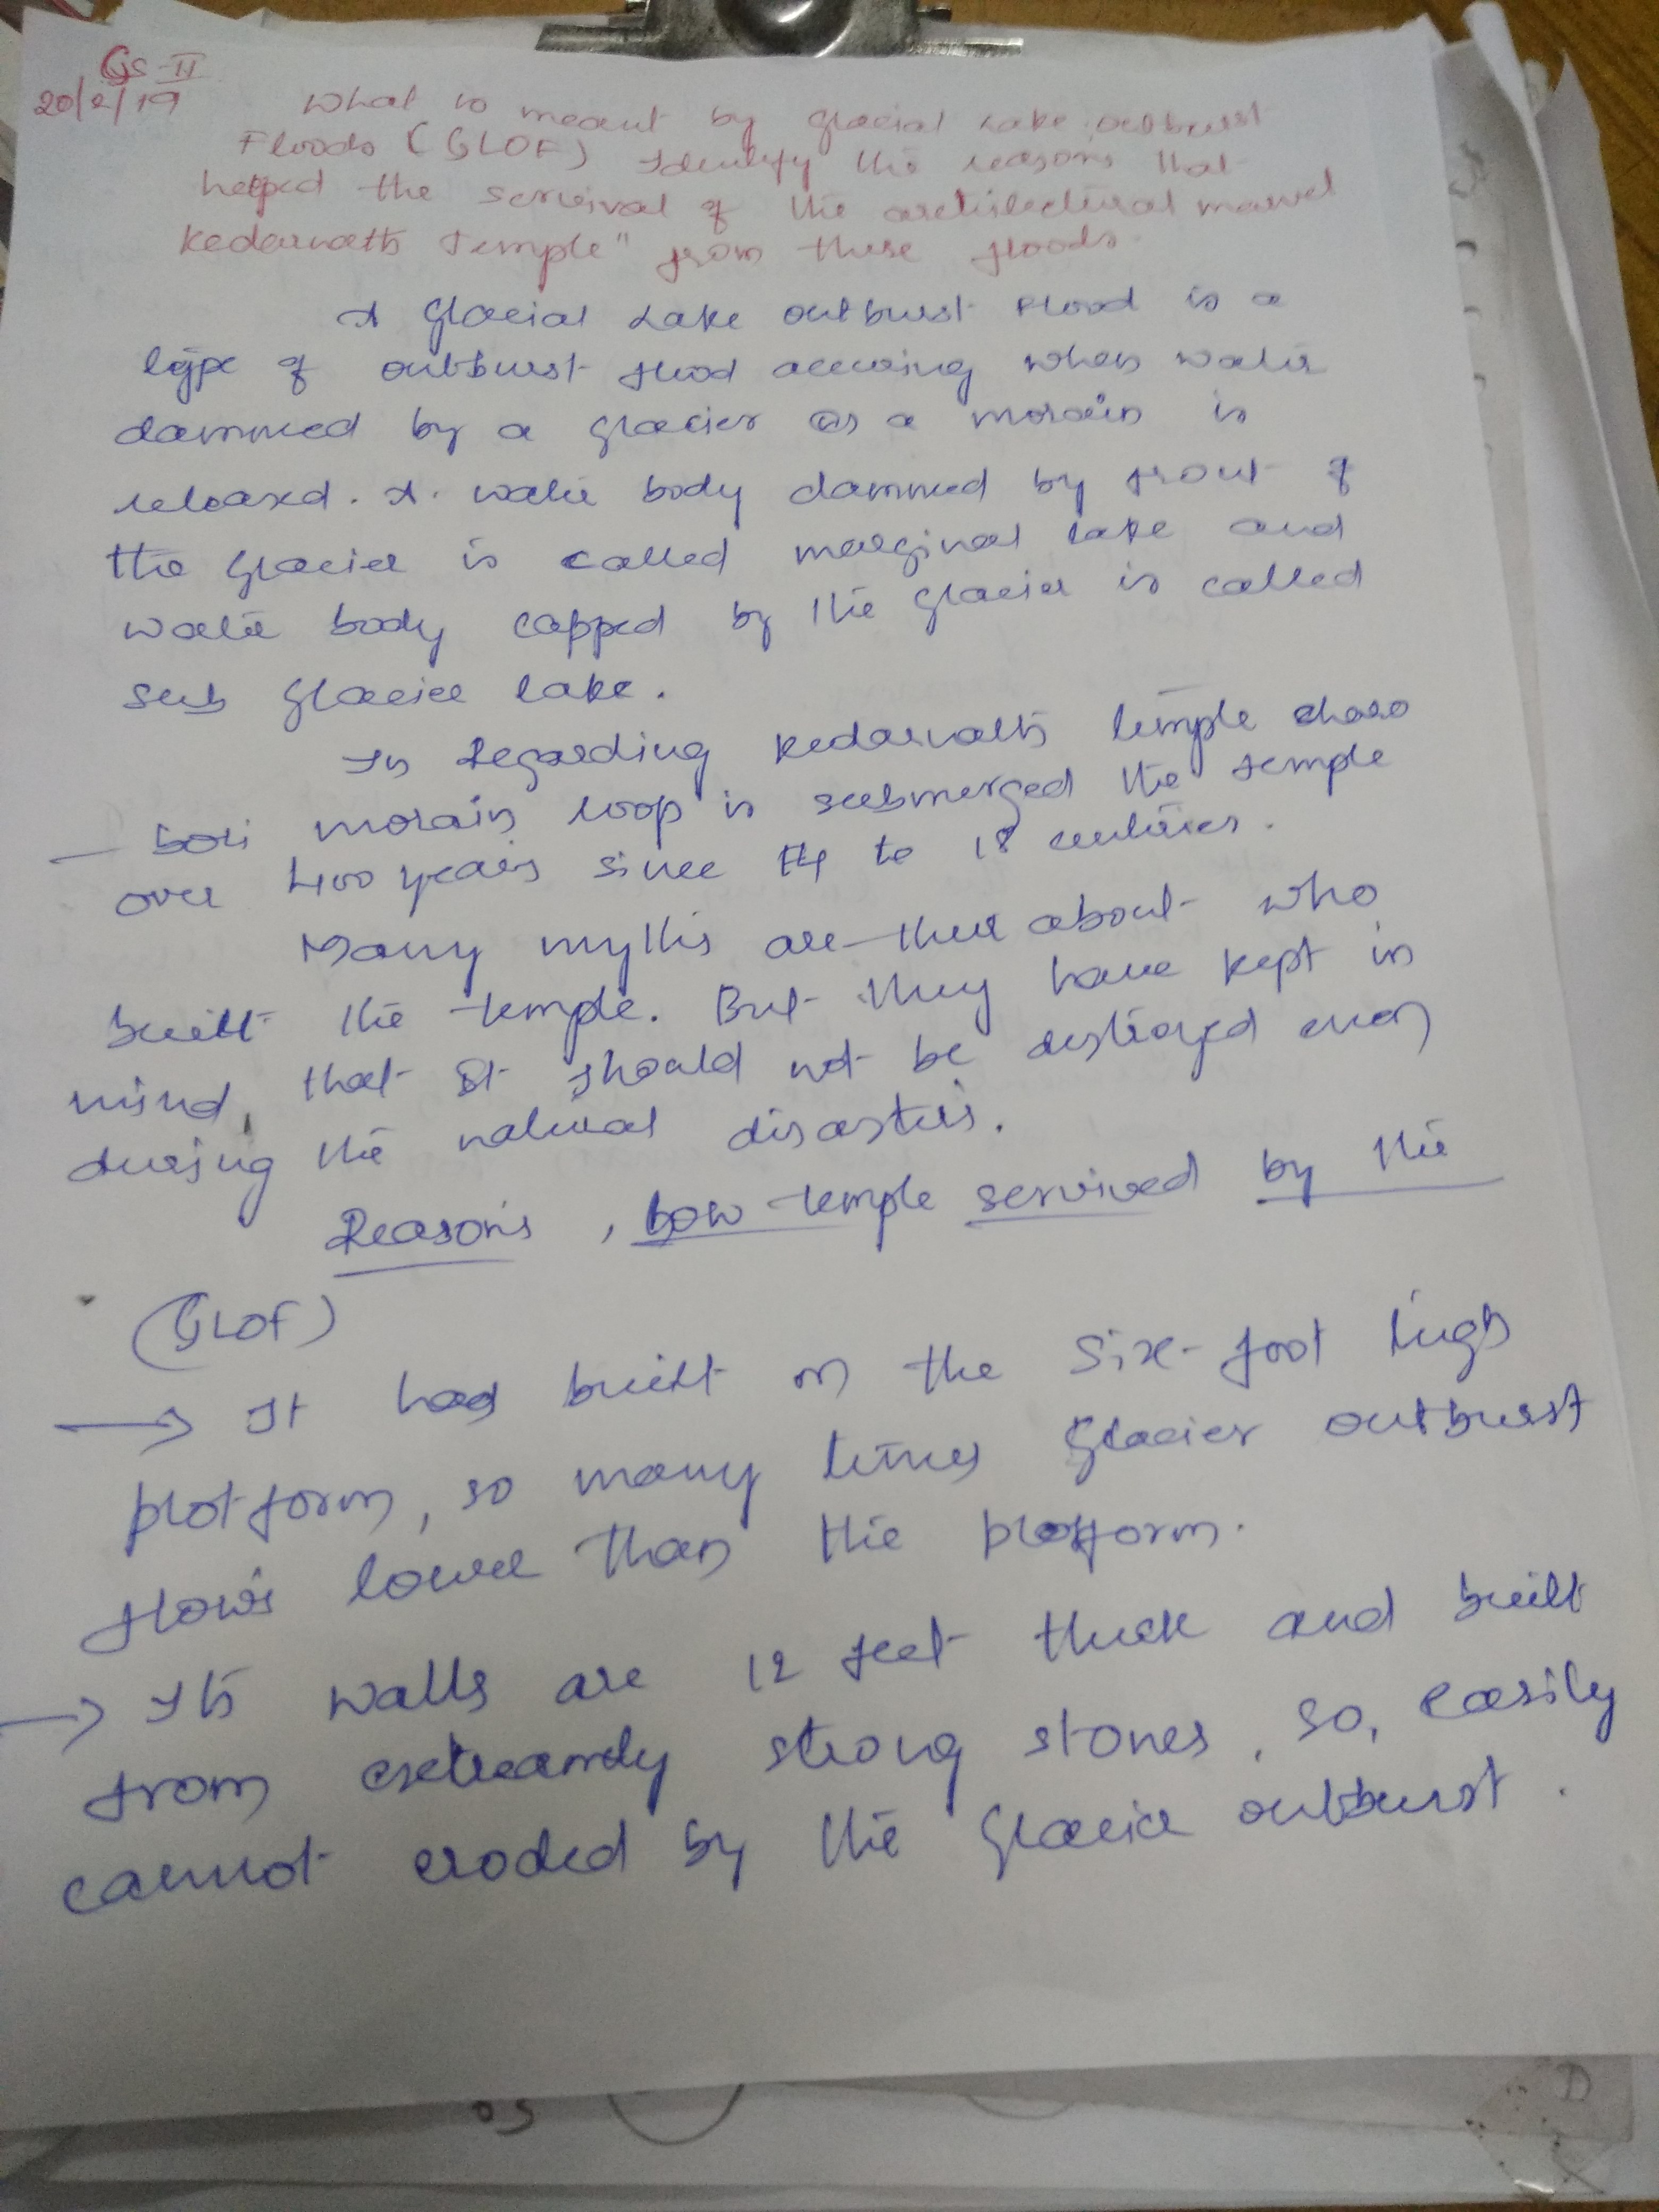 GS-II
20/2/19
What is meant by Glacial Lake outburst
Floods (GLOF) Identify the reasons that
helped the servival of the architectural marvel
Kedarnath Temple" from these floods.
A Glacial Lake outburst Flood is a
type of outburst flood accuring when water
dammed by a glacier or a morain is
released. A. water body dammed by front of
the glacier is called marginal lake and
water body capped by the glacier is called
sub glacier lake.
In Regarding Kedarnath temple choro
bori morain loop is submerged the temple
over 400 years since 14 to 18 centuries.
Many myths are there about who
built the temple. But they have kept in
mind, that it should not be destroyed even
during the natural disasters.
Reasons, how temple servived by the
(GLOF)
→ It has built on the six-foot high
platform, so many times glacier outburst
flows lower than the platform.
→ Its walls are 12 feet thick and built
from extreamly strong stones, so, easily
cannot eroded by the glacier outburst.
50
D